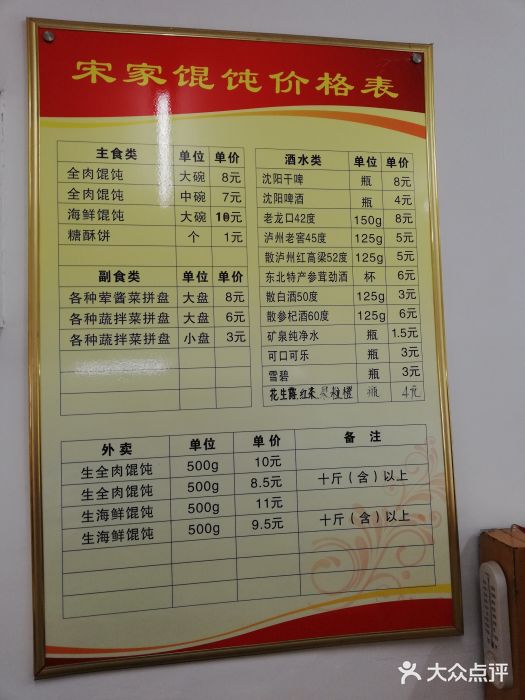 宋家馄饨价格表
主食类 单位 单价
全肉馄饨 大碗 8元
全肉馄饨 中碗 7元
海鲜馄饨 大碗 10元
糖酥饼 个 1元
副食类 单位 单价
各种荤酱菜拼盘 大盘 8元
各种蔬拌菜拼盘 大盘 6元
各种蔬拌菜拼盘 小盘 3元
酒水类 单位 单价
沈阳干啤 瓶 8元
沈阳啤酒 瓶 4元
老龙口42度 150g 8元
泸州老窖45度 125g 5元
散泸州红高粱52度 125g 5元
东北特产参茸劲酒 杯 6元
散白酒50度 125g 3元
散参杞酒60度 125g 6元
矿泉纯净水 瓶 1.5元
可口可乐 瓶 3元
雪碧 瓶 3元
花生露.红枣.果粒橙 瓶 4元
外卖 单位 单价 备注
生全肉馄饨 500g 10元
生全肉馄饨 500g 8.5元 十斤（含）以上
生海鲜馄饨 500g 11元
生海鲜馄饨 500g 9.5元 十斤（含）以上
大众点评